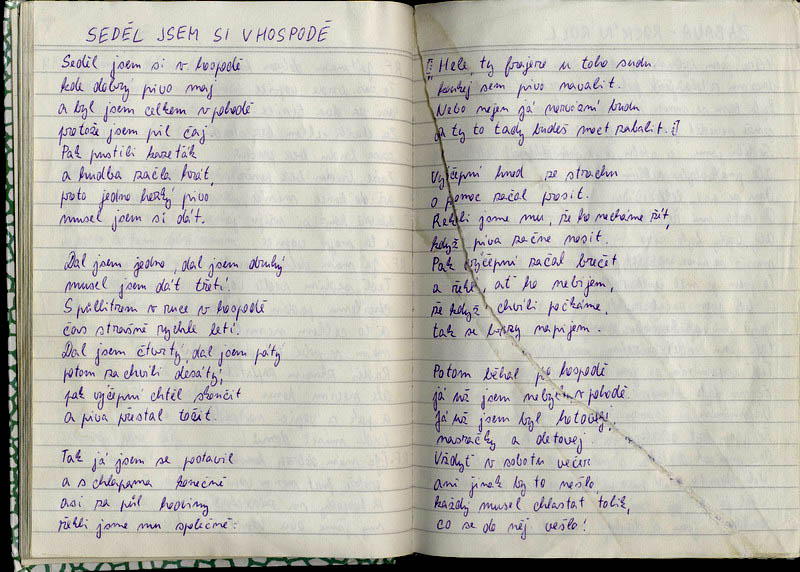 SEDĚL JSEM SI V HOSPODĚ
Seděl jsem si v hospodě
kde dobrý pivo maj
a byl jsem celkem v pohodě
protože jsem pil čaj.
Pak pustili kazeťák
a hudba začla hrát,
proto jedno hezký pivo
musel jsem si dát.
Dal jsem jedno, dal jsem druhý
musel jsem dát třetí.
S půllitrem v ruce v hospodě
čas strašně rychle letí.
Dal jsem čtvrtý, dal jsem pátý
potom za chvíli desátý,
pak výčepní chtěl skončit
a piva přestal točit.
Tak já jsem se postavil
a s chlapama konečně
asi za půl hodiny
řekli jsme mu společně:
[: Hele, ty frajere u toho sudu
koukej sem pivo navalit.
Nebo nejen já nervózní budu
a ty to tady budeš moct zabalit. :]
Výčepní hned ze strachu
o pomoc začal prosit.
Řekli jsme mu, že ho necháme žít,
když piva začne nosit.
Pak výčepní začal brečet
a řekl, ať ho nebijem,
že když chvíli počkáme,
tak se brzy napijem.
Potom běhal po hospodě
já už jsem nebyl v pohodě.
Já už jsem byl hotovej,
nasračky a detovej.
Vždyť v sobotu večer
ani jinak by to nešlo,
každý musel chlastat tolik,
co se do něj vešlo!